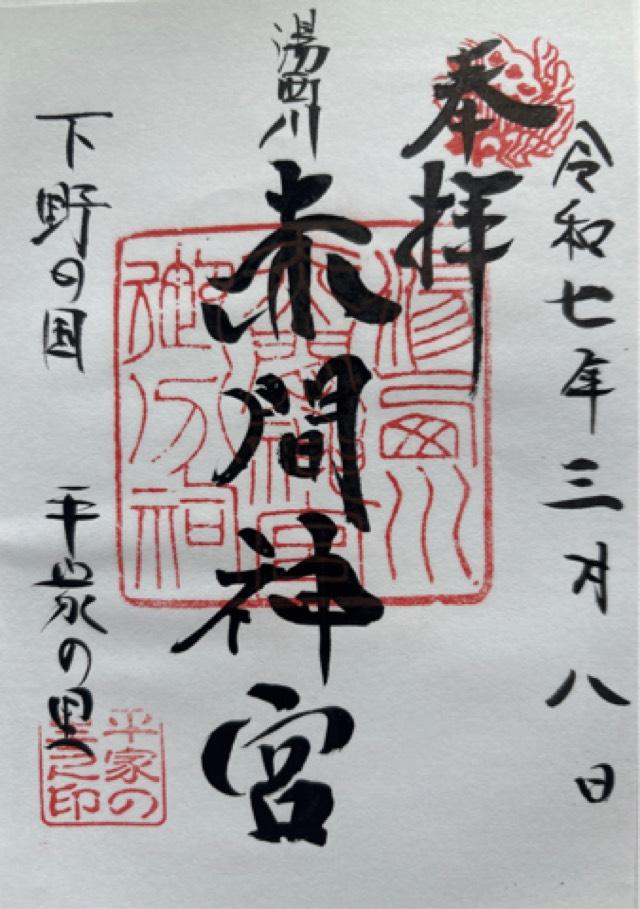 令和七年三月八日
奉拝
湯西川
赤間神宮
下野の国 平家の里
湯西川
赤間神宮
平家の
里之印